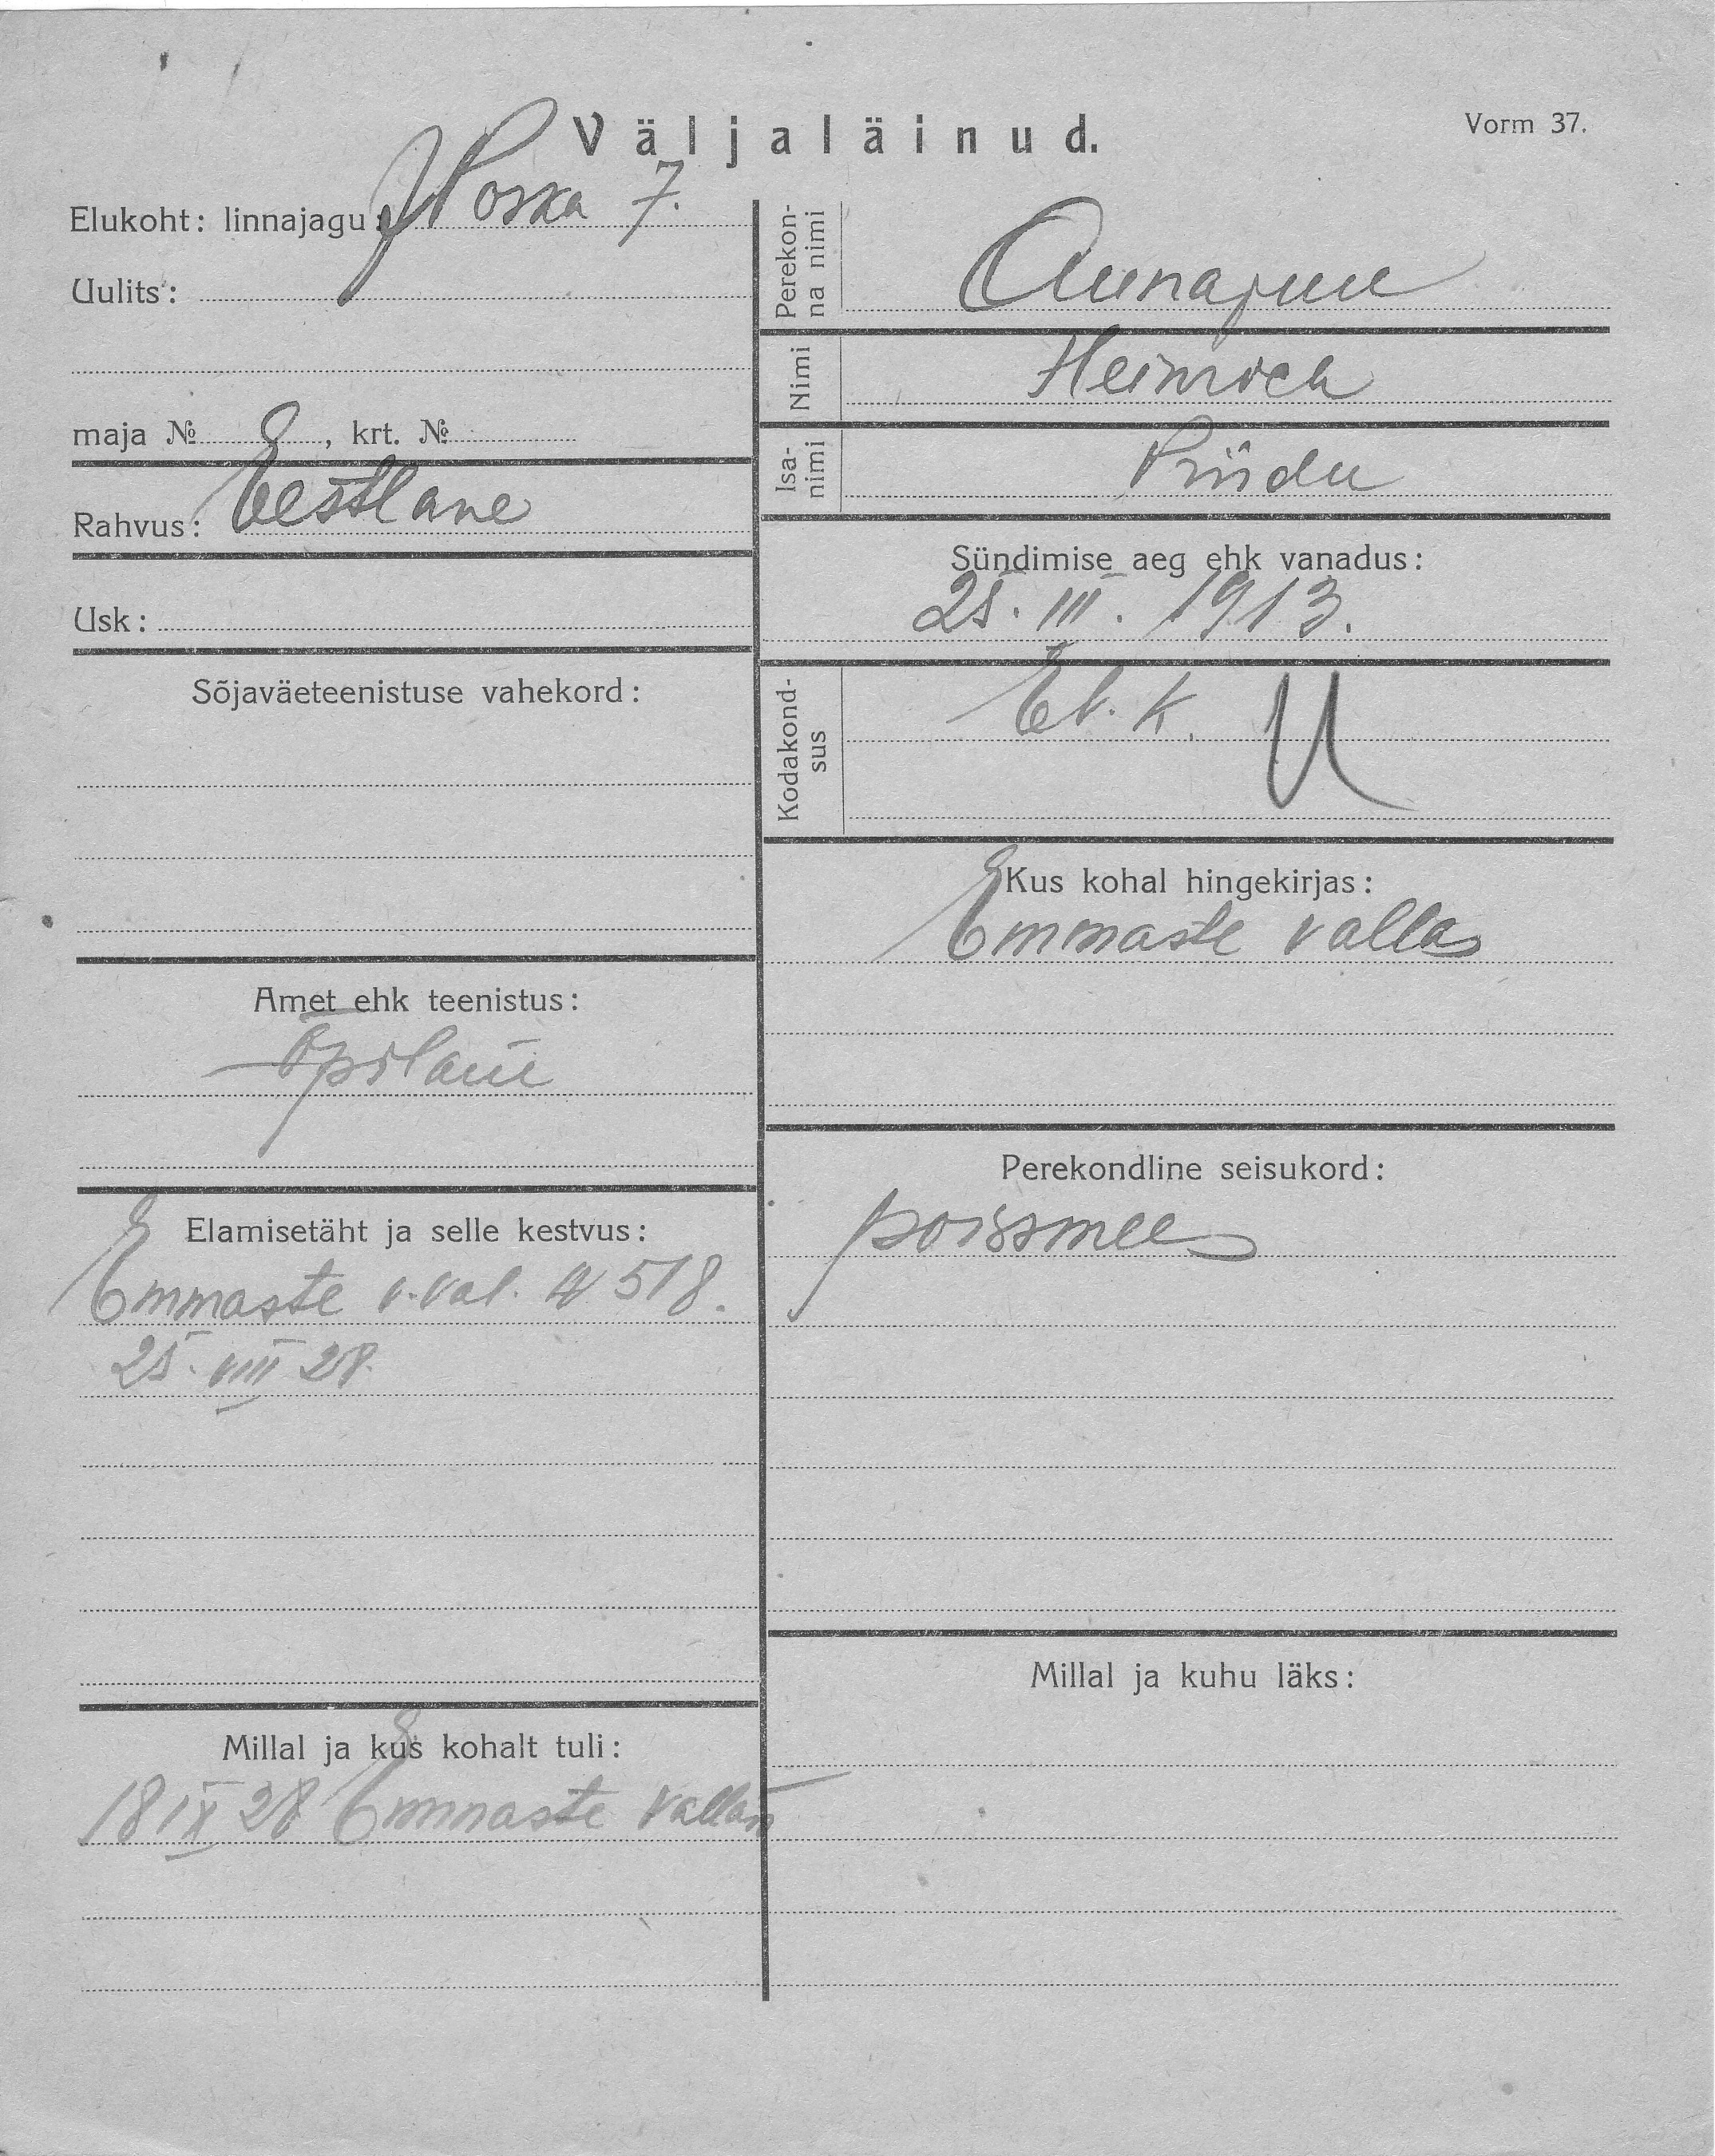 Väljaläinud.
Vorm 37.
Elukoht: linnajagu: J Poska 7.
Uulits:
maja № , krt. №
Rahvus: Eestlane
Usk:
Sõjaväeteenistuse vahekord:
Amet ehk teenistus:
Õpilane
Elamisetäht ja selle kestvus:
Emmaste v.val. № 518.
25. VIII 28.
Millal ja kus kohalt tuli:
18 IX 28 Emmaste vallast
Perekonna nimi
Aunapuu
Nimi
Heinrich
Isanimi
Priidu
Sündimise aeg ehk vanadus:
25. III. 1913.
Kodakondsus
E.k.
Kus kohal hingekirjas:
Emmaste vallas
Perekondline seisukord:
poissmees
Millal ja kuhu läks: